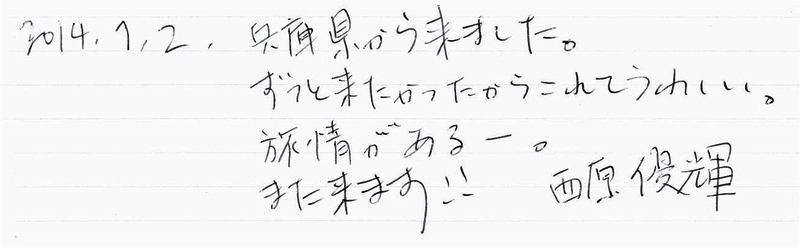 2014.1.2. 兵庫県から来ました。
ずっと来たかったからこれてうれしい。
旅情があるー。
また来ます!! 西原優輝